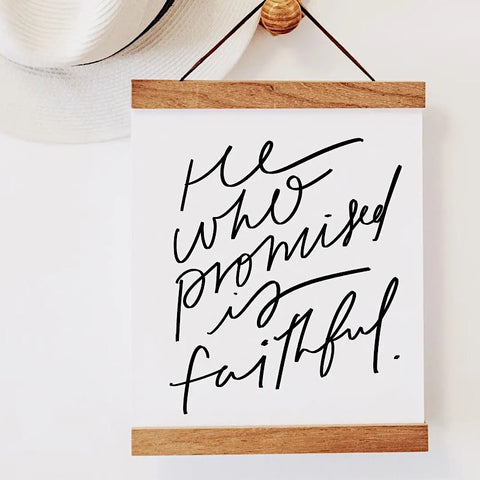 He
who
promised
is
faithful.